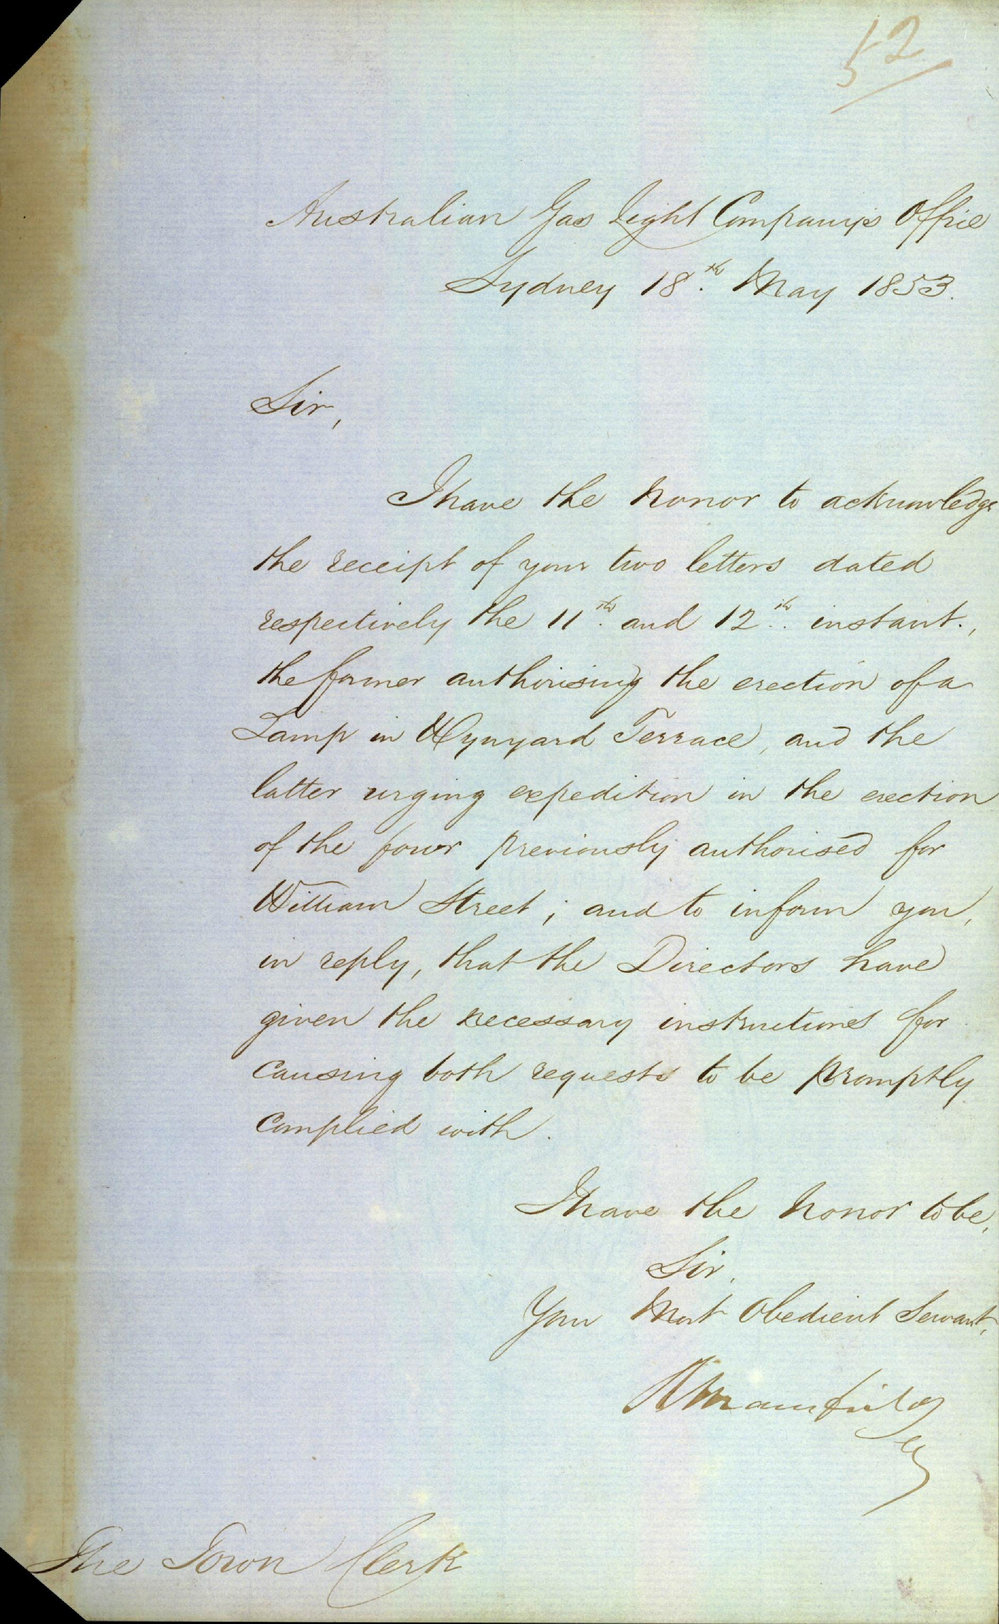 52
Australian Gas Light Company's Office
Sydney 18th. May 1853.
Sir,
I have the honor to acknowledge
the receipt of your two letters dated
respectively the 11th. and 12th. instant.,
the former authorising the erection of a
Lamp in Wynyard Terrace, and the
latter urging expedition in the erection
of the four previously authorised for
William Street; and to inform you,
in reply, that the Directors have
given the necessary instructions for
causing both requests to be promptly
complied with.
I have the honor to be,
Sir,
Your Most Obedient Servant,
R Mansfield
The Town Clerk